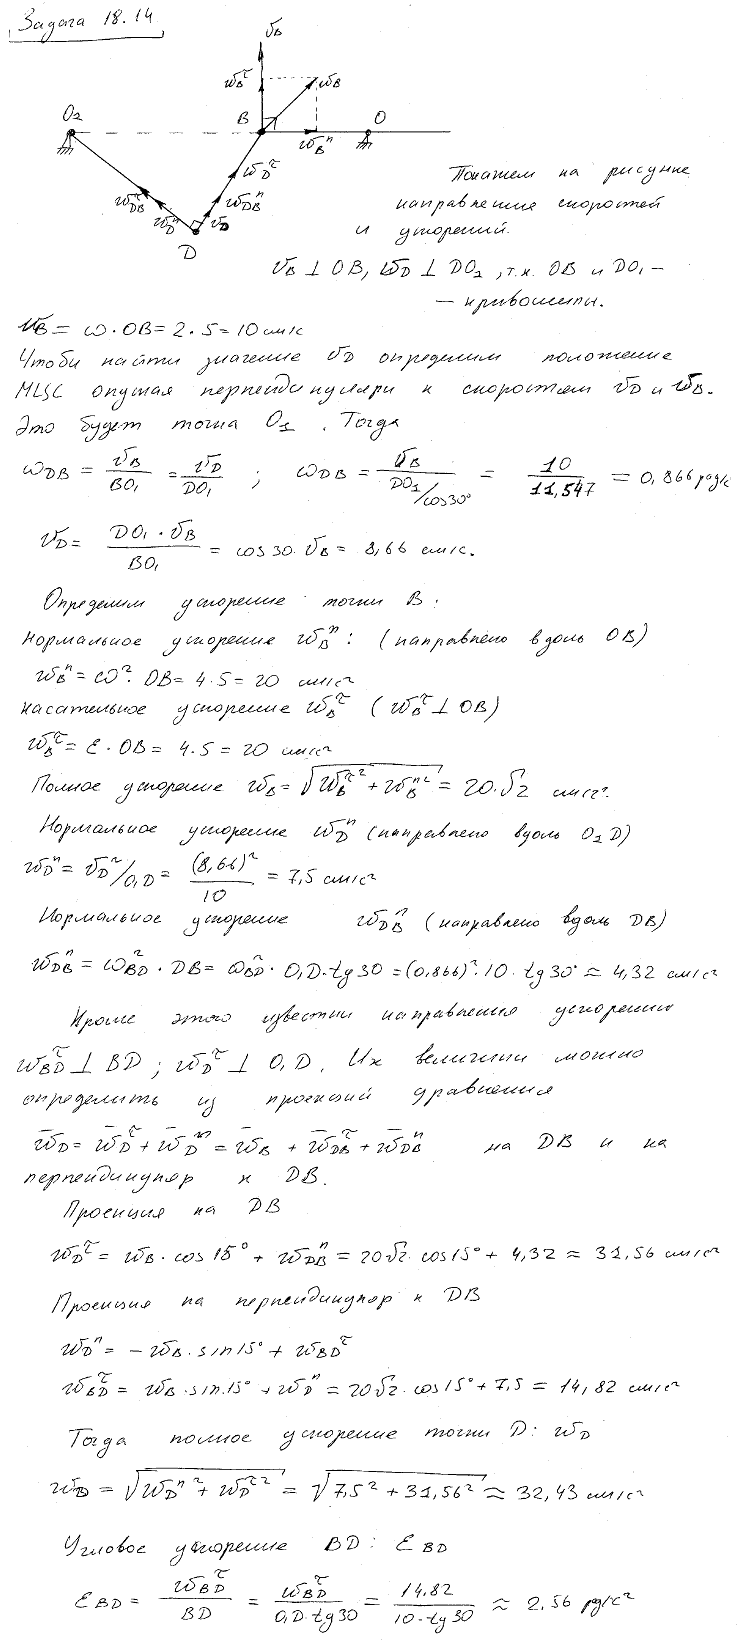 Задача 18.14
v_B
w_B^τ w_B
O₂ B O
w_B^n
w_D^τ
w_DB^τ w_D^n w_DB^n
v_D
D
Покажем на рисунке
направления скоростей
и ускорений.
v_B ⊥ OB, w_D ⊥ DO₂, т.к. OB и DO₁ –
– кривошипы.
v_B = ω · OB = 2 · 5 = 10 см/с
Чтоби найти значение v_D определим положение
МЦС опуская перпендикуляри к скоростям v_D и v_B.
Это будет точка O₁. Тогда
ω_DB = v_B / BO₁ = v_D / DO₁ ; ω_DB = v_B / (DO₁/cos30°) = 10 / 11,547 = 0,866 рад/с
v_D = DO₁ · v_B / BO₁ = cos 30 · v_B = 8,66 см/с.
Определим ускорение точки B:
Нормальное ускорение w_B^n: (направлено вдоль OB)
w_B^n = ω² · OB = 4 · 5 = 20 см/с²
касательное ускорение w_B^τ (w_B^τ ⊥ OB)
w_B^τ = ε · OB = 4 · 5 = 20 см/с²
Полное ускорение w_B = √(w_B^τ² + w_B^n²) = 20 · √2 см/с².
Нормальное ускорение w_D^n (направлено вдоль O₁D)
w_D^n = v_D²/O₁D = (8,66)² / 10 = 7,5 см/с²
Нормальное ускорение w_DB^n (направлено вдоль DB)
w_DB^n = ω_BD² · DB = ω_BD² · O₁D · tg 30 = (0,866)² · 10 · tg 30° ≈ 4,32 см/с²
Кроме этого известни направления ускорений
w_BD^τ ⊥ BD ; w_D^τ ⊥ O₁D. Их величини можно
определить из проекций уравнения
w̄_D = w̄_D^τ + w̄_D^n = w̄_B + w̄_DB^τ + w̄_DB^n на DB и на
перпендикуляр к DB.
Проекция на DB
w_D^τ = w_B · cos 15° + w_DB^n = 20√2 · cos 15° + 4,32 ≈ 31,56 см/с²
Проекция на перпендикуляр к DB
w_D^n = – w_B · sin 15° + w_BD^τ
w_BD^τ = w_B · sin 15° + w_D^n = 20√2 · cos 15° + 7,5 = 14,82 см/с²
Тогда полное ускорение точки D: w_D
w_D = √(w_D^n² + w_D^τ²) = √(7,5² + 31,56²) ≈ 32,43 см/с²
Угловое ускорение BD: ε_BD
ε_BD = w_BD^τ / BD = w_BD^τ / (O₁D · tg 30) = 14,82 / (10 · tg 30) ≈ 2,56 рд/с²